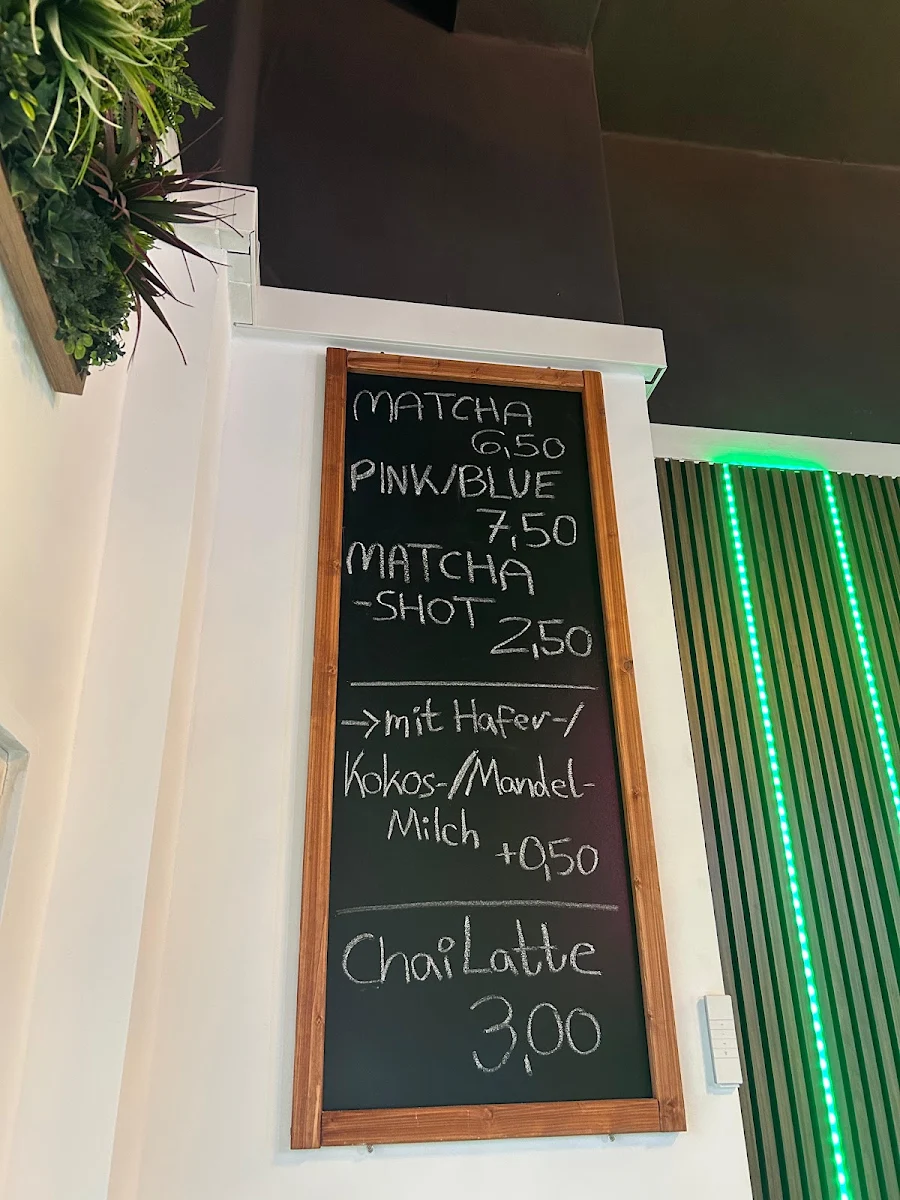 MATCHA
6,50
PINK/BLUE
7,50
MATCHA
-SHOT
2,50
->mit Hafer-/
Kokos-/Mandel-
Milch
+0,50
Chai Latte
3,00